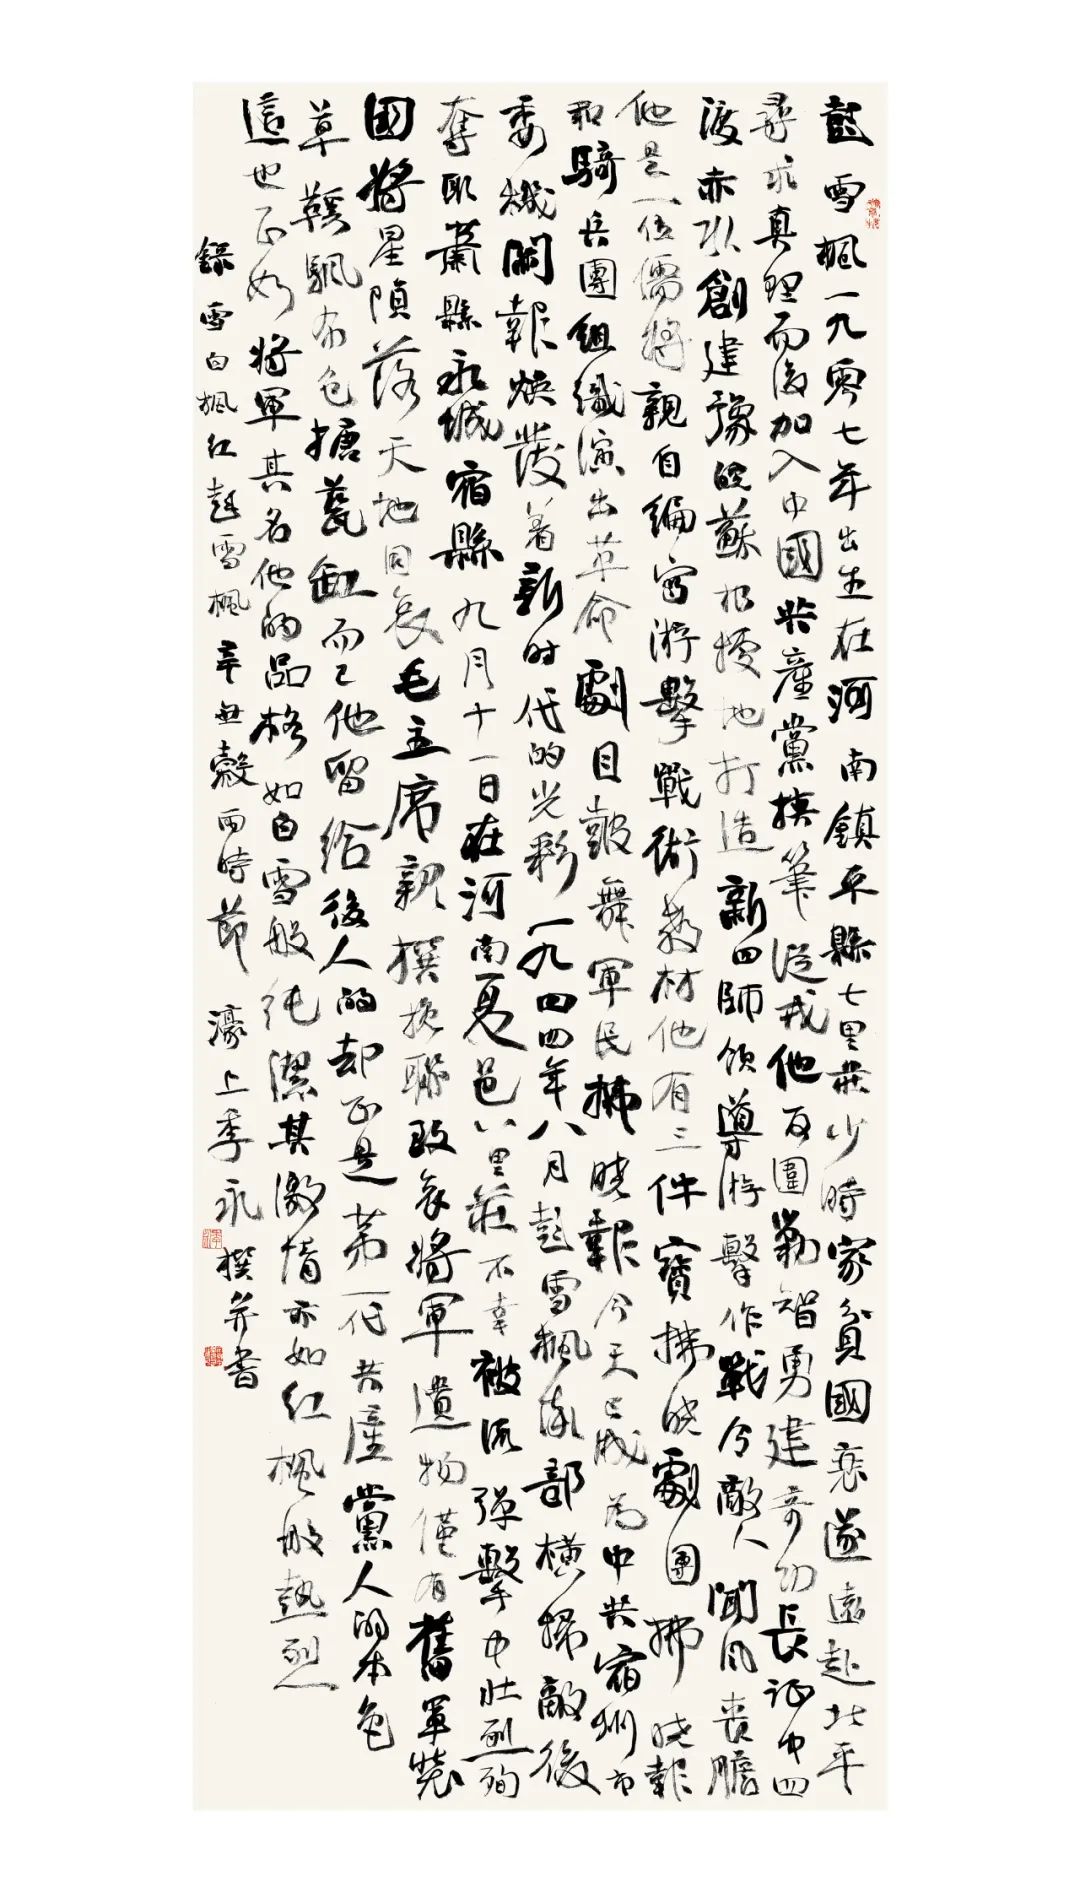 彭雪楓一九零七年出生在河南鎮平縣七里莊少時家貧國衰遂遠赴北平
尋求真理而後加入中國共產黨投筆從戎他反圍剿智勇建奇功長征中四
渡赤水創建豫皖蘇根據地打造新四師領導游擊作戰令敵人聞風喪膽
他是一位儒將親自編寫游擊戰術教材他有三件寶拂曉劇團拂曉報
和騎兵團組織演出革命劇目鼓舞軍民拂曉報今天已成為中共宿州市
委機關報煥發着新時代的光彩一九四四年八月彭雪楓率部橫掃敵後
奪取蕭縣永城宿縣九月十一日在河南夏邑八里莊不幸被流彈擊中壯烈殉
國將星隕落天地同哀毛主席親撰挽聯致哀將軍遺物僅有舊軍裝
草鞋帆布包搪瓷缸而已他留給後人的却正是第一代共產黨人的本色
這也正如將軍其名他的品格如白雪般純潔其激情亦如紅楓般熱烈
錄雪白楓紅彭雪楓辛丑穀雨時節濠上季永撰并書